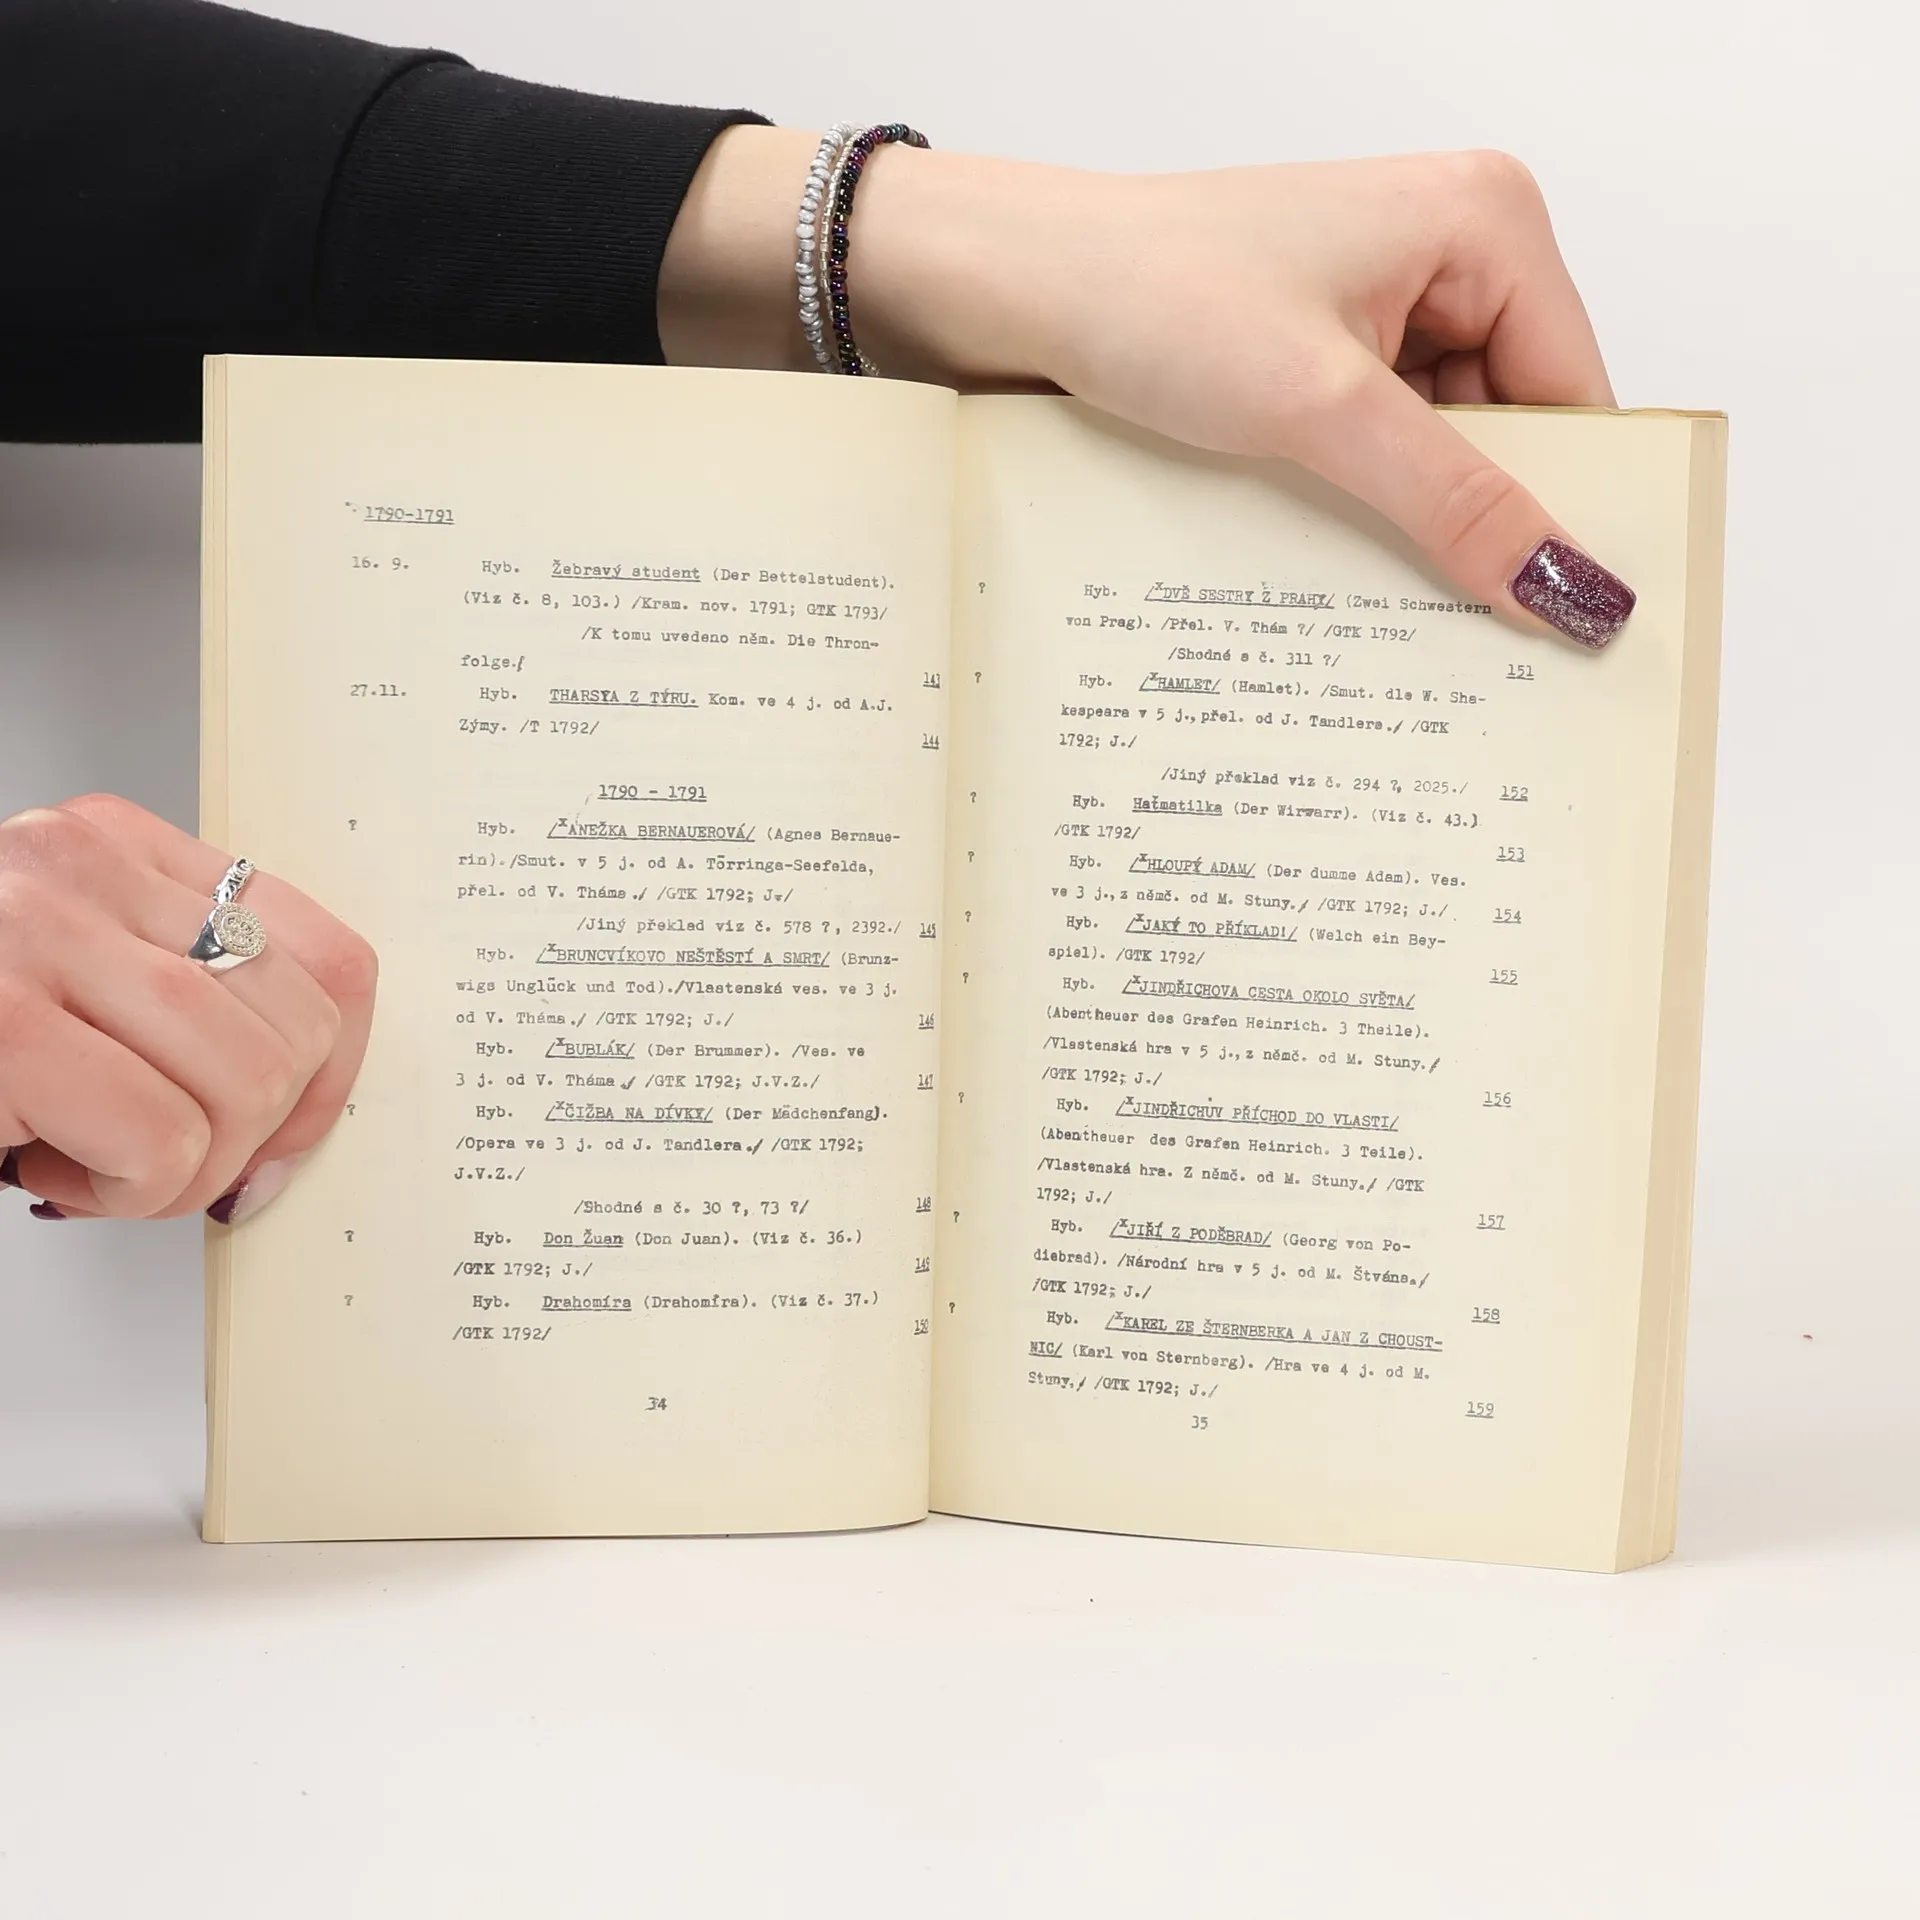 1790-1791
16. 9. Hyb. Žebravý student (Der Bettelstudent).
(Viz č. 8, 103.) /Kram. nov. 1791; GTK 1793/
/K tomu uvedeno něm. Die Thron-
folge./
143
27.11. Hyb. THARSYA Z TÝRU. Kom. ve 4 j. od A.J.
Zýmy. /T 1792/
144
1790 - 1791
? Hyb. /xANEŽKA BERNAUEROVÁ/ (Agnes Bernaue-
rin). /Smut. v 5 j. od A. Törringa-Seefelda,
přel. od V. Tháma./ /GTK 1792; J./
/Jiný překlad viz č. 578 ?, 2392./ 145
Hyb. /xBRUNCVÍKOVO NEŠTĚSTÍ A SMRT/ (Brunz-
wigs Unglück und Tod)./Vlastenská ves. ve 3 j.
od V. Tháma./ /GTK 1792; J./ 146
Hyb. /xBUBLÁK/ (Der Brummer). /Ves. ve
3 j. od V. Tháma./ /GTK 1792; J.V.Z./ 147
? Hyb. /xČIŽBA NA DÍVKY/ (Der Mädchenfang).
/Opera ve 3 j. od J. Tandlera./ /GTK 1792;
J.V.Z./
/Shodné s č. 30 ?, 73 ?/ 148
? Hyb. Don Žuan (Don Juan). (Viz č. 36.)
/GTK 1792; J./ 149
? Hyb. Drahomíra (Drahomíra). (Viz č. 37.)
/GTK 1792/ 150
34
? Hyb. /xDVĚ SESTRY Z PRAHY/ (Zwei Schwestern
von Prag). /Přel. V. Thám ?/ /GTK 1792/
/Shodné s č. 311 ?/ 151
? Hyb. /xHAMLET/ (Hamlet). /Smut. dle W. Sha-
kespeara v 5 j., přel. od J. Tandlera./ /GTK
1792; J./
/Jiný překlad viz č. 294 ?, 2025./ 152
? Hyb. Hařmatilka (Der Wirwarr). (Viz č. 43.)
/GTK 1792/ 153
? Hyb. /xHLOUPÝ ADAM/ (Der dumme Adam). Ves.
ve 3 j., z němč. od M. Stuny./ /GTK 1792; J./ 154
? Hyb. /xJAKÝ TO PŘÍKLAD!/ (Welch ein Bey-
spiel). /GTK 1792/ 155
? Hyb. /xJINDŘICHOVA CESTA OKOLO SVĚTA/
(Abentheuer des Grafen Heinrich. 3 Theile).
/Vlastenská hra v 5 j., z němč. od M. Stuny./
/GTK 1792; J./ 156
? Hyb. /xJINDŘICHŮV PŘÍCHOD DO VLASTI/
(Abentheuer des Grafen Heinrich. 3 Teile).
/Vlastenská hra. Z němč. od M. Stuny./ /GTK
1792; J./ 157
? Hyb. /xJIŘÍ Z PODĚBRAD/ (Georg von Po-
diebrad). /Národní hra v 5 j. od M. Štvána./
/GTK 1792; J./ 158
? Hyb. /xKAREL ZE ŠTERNBERKA A JAN Z CHOUST-
NIC/ (Karl von Sternberg). /Hra ve 4 j. od M.
Stuny./ /GTK 1792; J./ 159
35